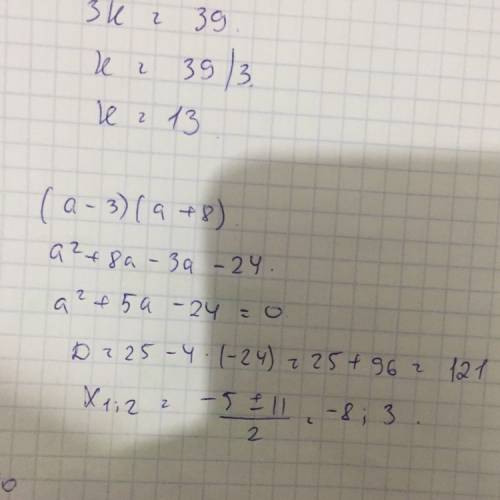 3x = 39.
x = 39/3.
x = 13
(a-3)(a+8).
a²+8a-3a-24.
a²+5a-24=0.
D=25-4·(-24)=25+96=121
X₁;₂ = (-5±11)/2 = -8; 3.